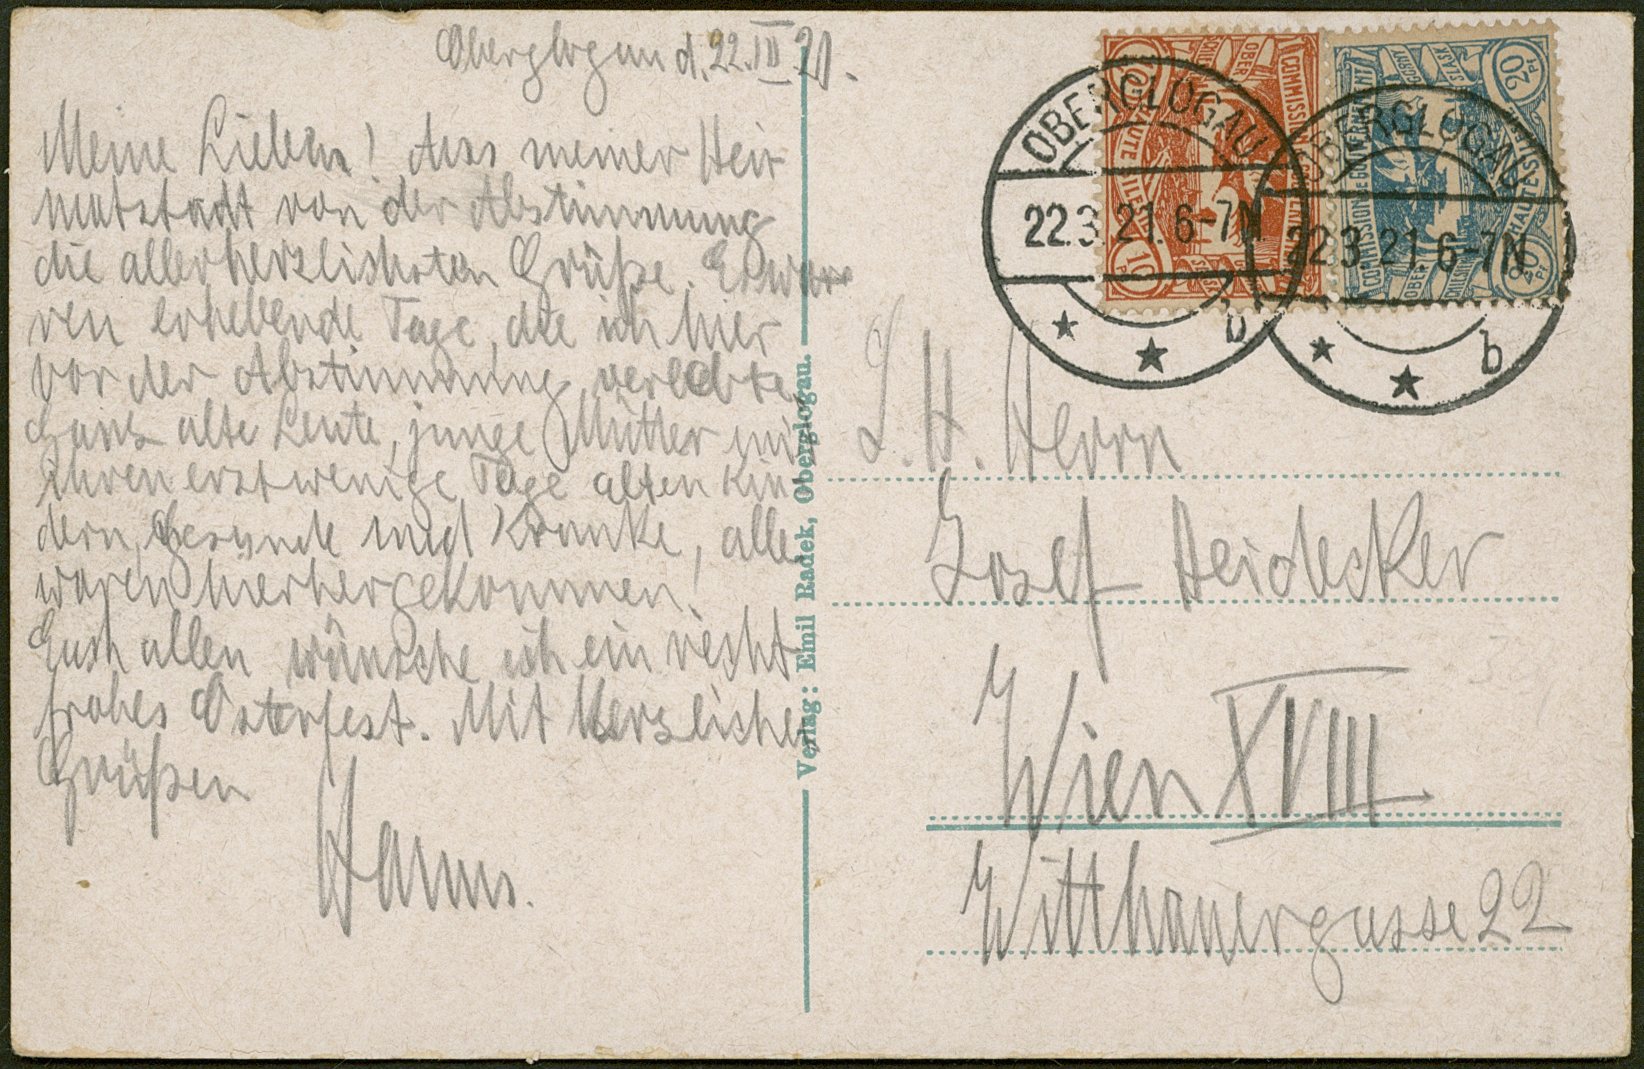 Oberglogau d. 22. III. 21.
Meine Lieben! Aus meiner Hei
matstadt von der Abstimmung
die allerherzlichsten Grüße. Es wa
ren erhebende Tage, die ich hier
vor der Abstimmung verlebte.
Ganz alte Leute, junge Mütter mit
ihren erst wenige Tage alten Kin
dern, Gesunde und Kranke, alle
waren hierhergekommen!
Euch allen wünsche ich ein recht
frohes Osterfest. Mit herzlichen
Grüßen
Hanns.
Verlag: Emil Radek, Oberglogau.
OBERGLOGAU
22.3.21.6-7N
b
OBERGLOGAU
22.3.21.6-7N
b
COMMISSION DE GOUVERNEMENT
HAUTE SILÉSIE
OBER
10
10
COMMISSION DE GOUVERNEMENT
HAUTE SILÉSIE
GÓRNY
ŚLĄSK
OBER
20
20
S. H. Herrn
Josef Heidecker
Wien XVIII.
Witthauergasse 22